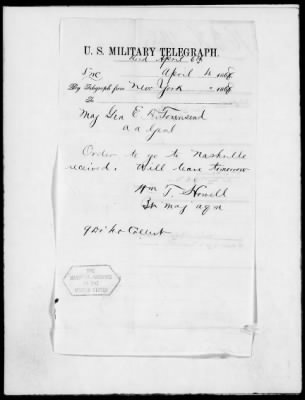 U. S. MILITARY TELEGRAPH.
Recd April 6th
April 4 1868
By Telegraph from New York 1868
To
Maj Gen E. D. Townsend
a a Genl
Order to go to Nashville
received. Will leave tomorrow
Wm T. Howell
Bt Maj aqm
Collect
THE
NATIONAL ARCHIVES
OF THE
UNITED STATES